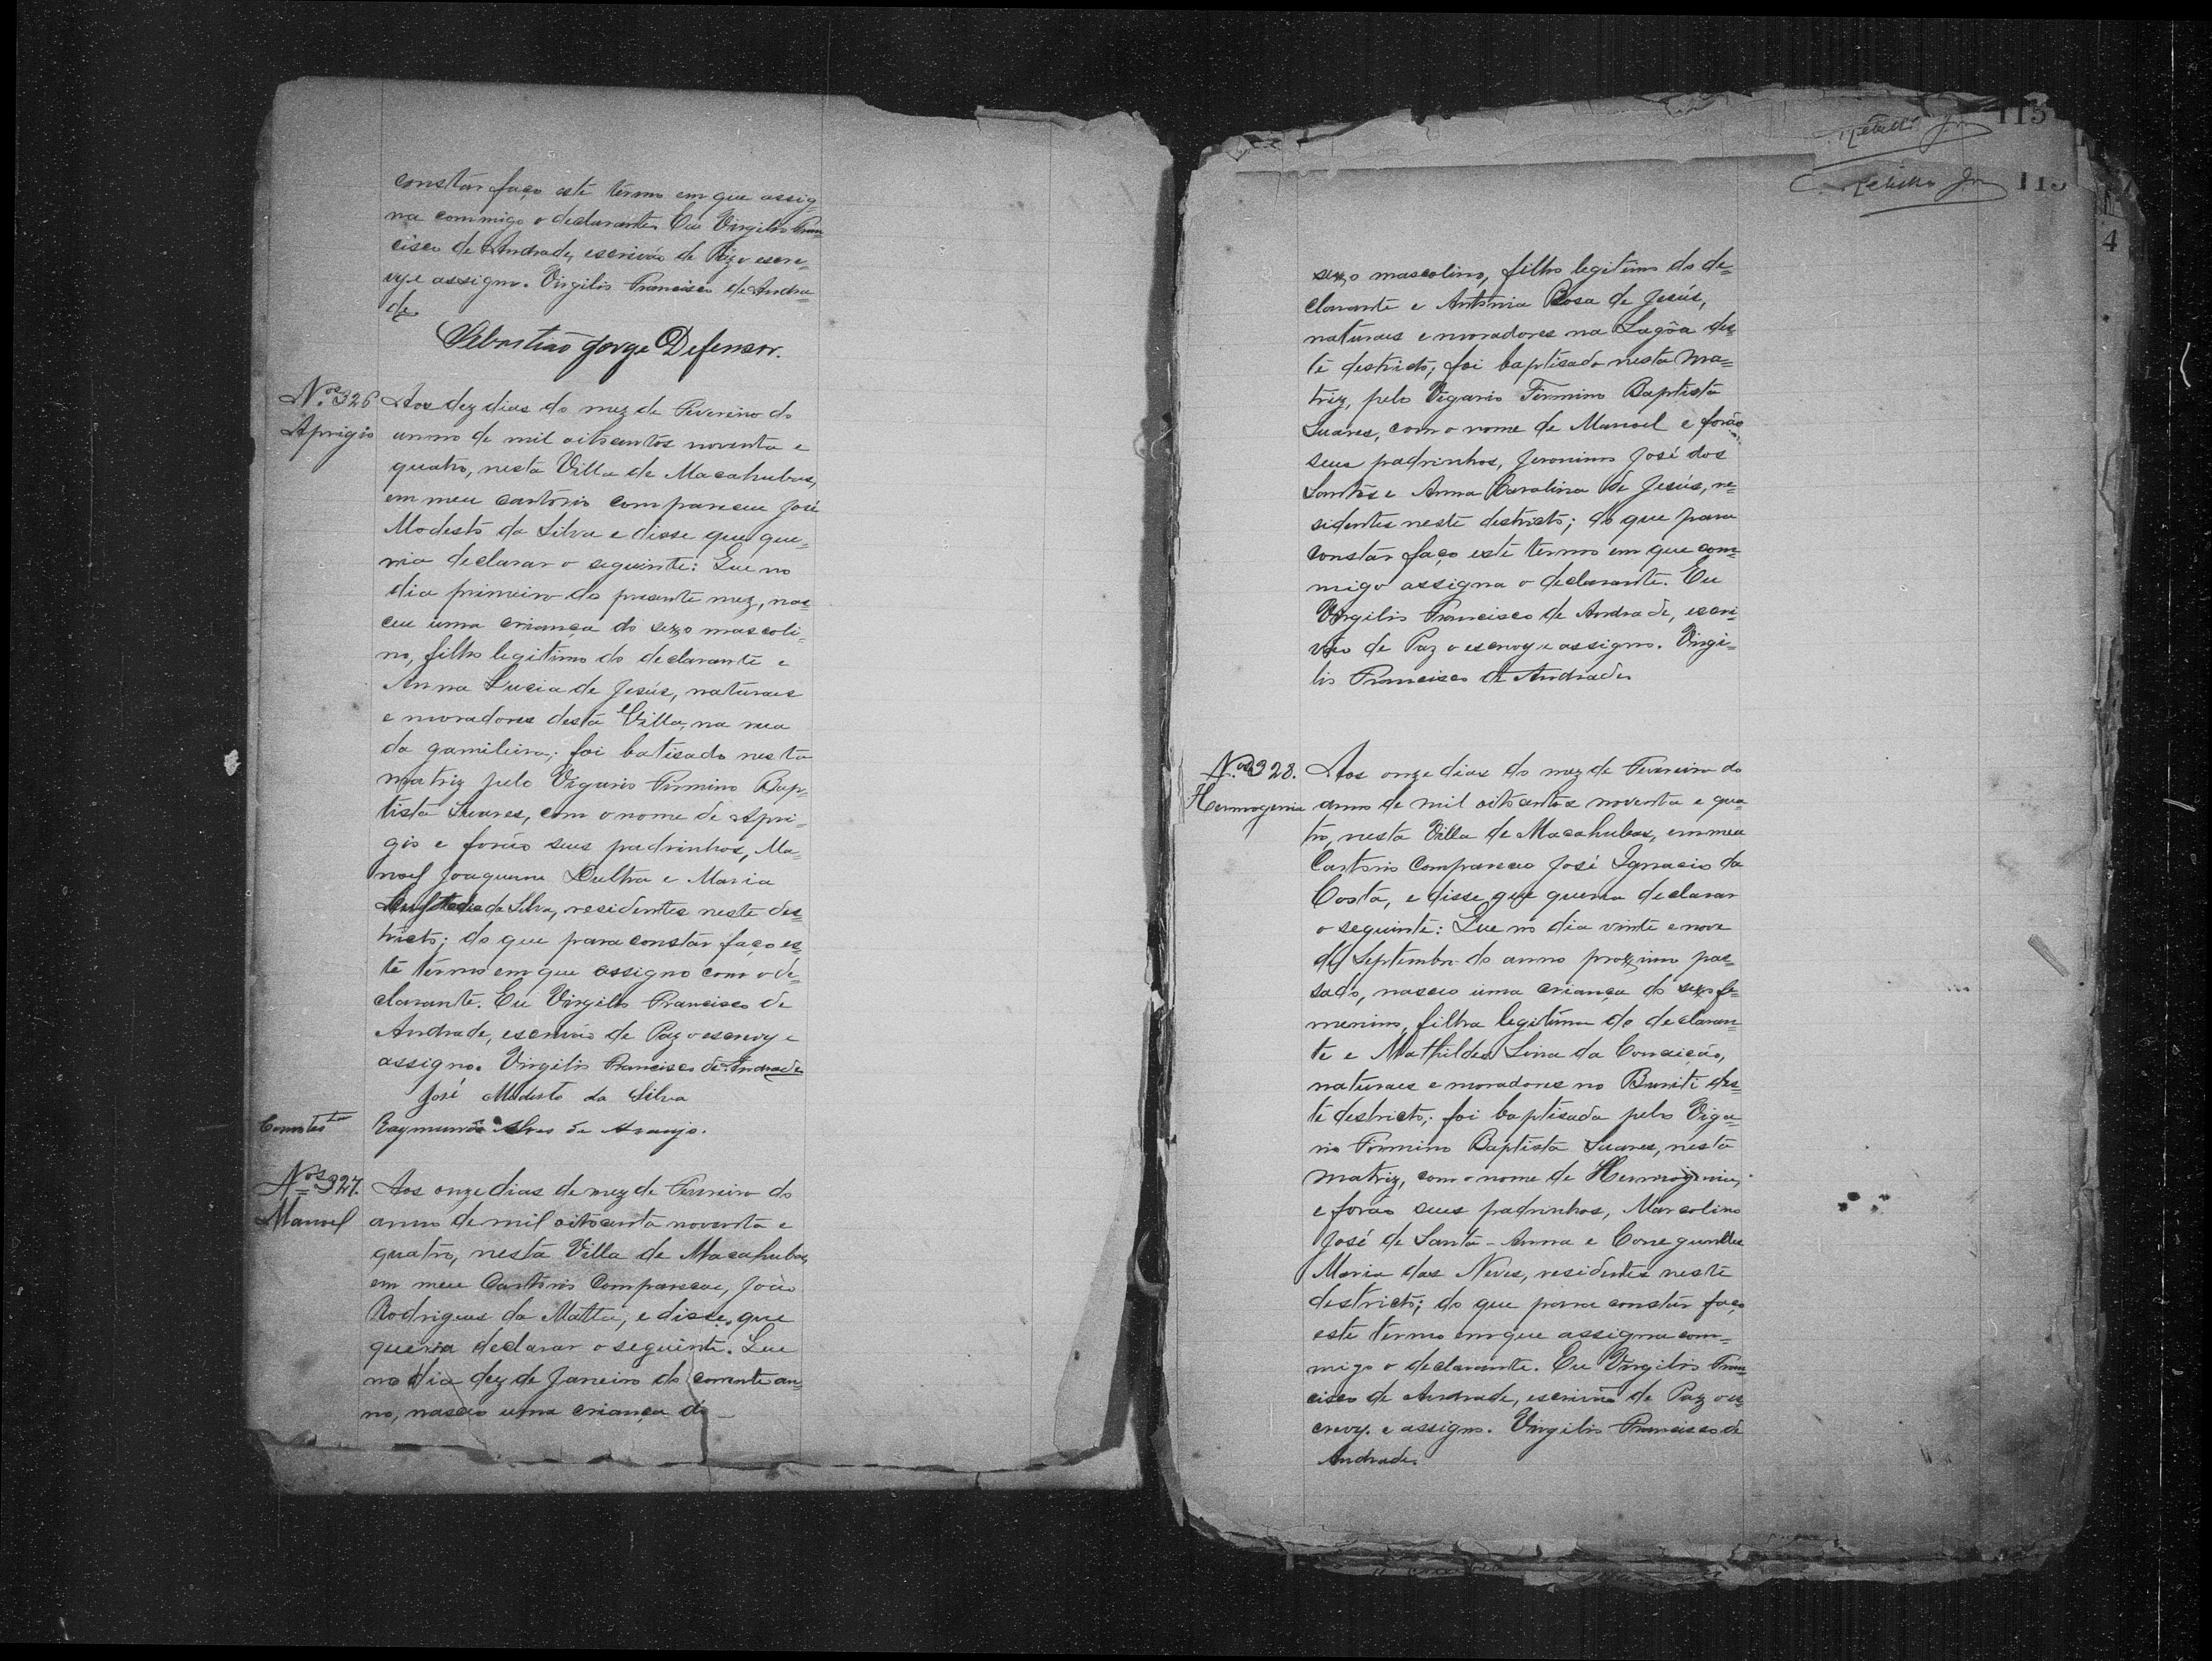 constár faço esté termo em que assig=
na commigo o declarante. Eu Virgilio Fran=
cisco de Andrade, escrivão de Paz o escre=
vy e assigno. Virgilio Francisco de Andra=
de.
Sebastião Jorge Defensor.
Nos 326
Aprigio
Aos dez dias do mez de Fevereiro do
anno de mil oitocentos noventa e
quatro, nesta Villa de Macahubas,
em meu cartorio compareceu José
Modesto da Silva e disse que que=
ria declarar o seguinte: Que no
dia primeiro do presente mez, nas=
ceu uma criança do sexo mascoli=
no, filho legitimo do declarante e
Anna Lucia de Jesús, naturaes
e moradores desta Villa, na rua
da gamileira; foi batisado nesta
matriz pelo Vigario Firmino Bap=
tista Suares, com o nome de Apri=
gio e forão seus padrinhos, Ma=
noel Joaquim Dultra e Maria
da Silva, residentes neste des=
tricto; do que para constár faço es=
te termo em que assigno com o de=
clarante. Eu Virgilio Francisco de
Andrade, escrivão de Paz o escrevy e
assigno. Virgilio Francisco de Andrade
José Modesto da Silva
Raymundo Alves de Araujo.
Nos 327.
Manoel
Aos onze dias de mez de Fevereiro do
anno de mil oitocenta noventa e
quatro, nesta Villa de Macahubas,
em meu Cartorio Compareceu, João
Rodrigues da Matta, e disse, que
queria declarar o seguinte. Que
no dia dez de Janeiro do corrente an=
no, nasceo uma criança do
115
115
4
sexo mascolino, filho legitimo do de=
clarante e Antonia Rosa de Jesús,
naturaes e moradores na Lagôa des=
te destricto; foi baptisado nesta Ma=
triz, pelo Vigario Firmino Baptista
Suares, com o nome de Manoel e forão
seus padrinhos, Jeronimo José dos
Santos e Anna Carolina de Jesús, re=
sidentes neste destricto; do que para
constár faço esté termo em que com=
migo assigna o declarante. Eu
Virgilio Francisco de Andrade, escri=
vão de Paz o escrevy e assigno. Virgi=
lio Francisco de Andrade.
Nos 328.
Hermogenia
Aos onze dias do mez de Fevereiro do
anno de mil oitocentos noventa e qua=
tro, nesta Villa de Macahubas, em meu
Cartorio Compareceo José Ignacio da
Costa, e disse que queria declarar
o seguinte: Que no dia vinte e nove
de Septembro do anno proximo pas=
sado, nasceo uma criança do sexo fe=
menino, filha legitima do declaran=
te e Mathildes Lina da Conceição,
naturaes e moradores no Buriti des=
te destricto; foi baptisada pelo Viga=
rio Firmino Baptista Suares, nesta
matriz, com o nome de Hermogenia,
e forão seus padrinhos, Marcolino
José de Santa-Anna e Conegundes
Maria das Neves, residentes neste
destricto; do que para constár faço
este termo em que assigna com=
migo o declarante. Eu Virgilio Fran=
cisco de Andrade, escrivão de Paz o es=
crevy. e assigno. Virgilio Francisco de
Andrade.